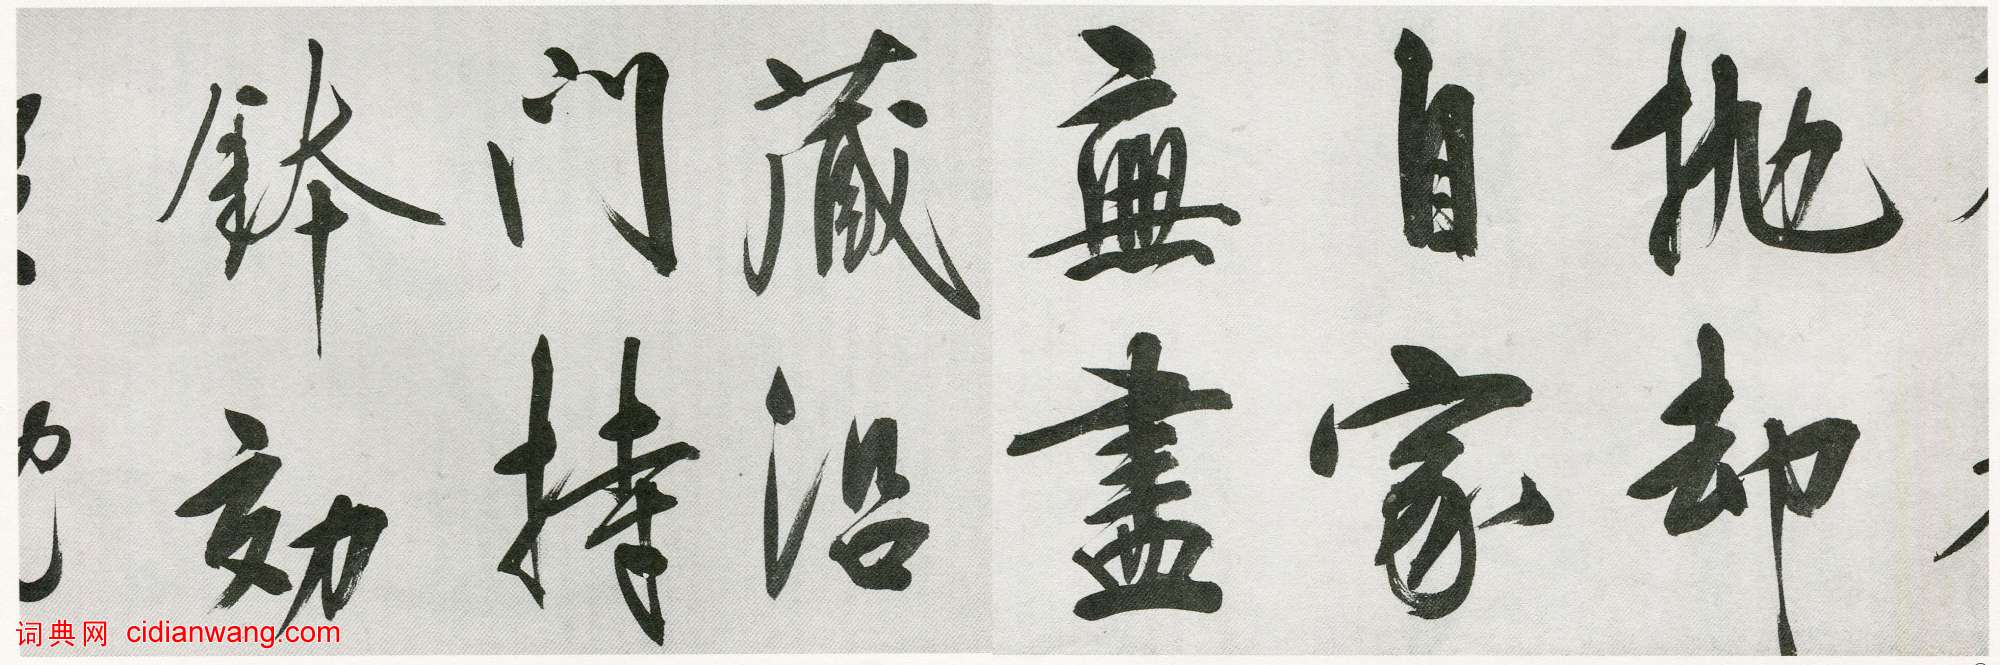 抛却
自家
無盡
藏沿
门持
鉢効
词典网 cidianwang.com